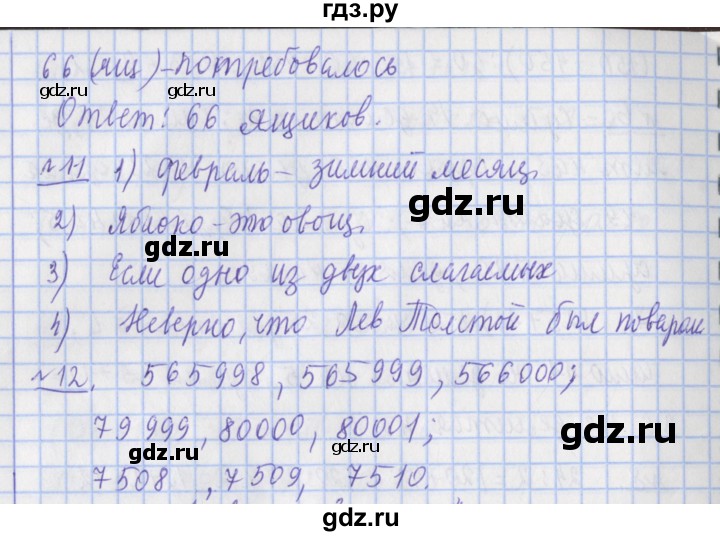 гдз.ру
66 (ящ) - потребовалось
gdz.ru gdz.ru gdz.ru
Ответ: 66 ящиков.
№11 1) февраль - зимний месяц.
gdz.ru
2) Яблоко - это овощ.
gdz.ru
3) Если одно из двух слагаемых
4) Неверно, что Лев Толстой был поваром
№12. 565998, 565999, 566000;
gdz.ru gdz.ru gdz.ru
79999, 80000, 80001;
gdz.ru
7508, 7509, 7510.
gdz.ru
gdz.ru